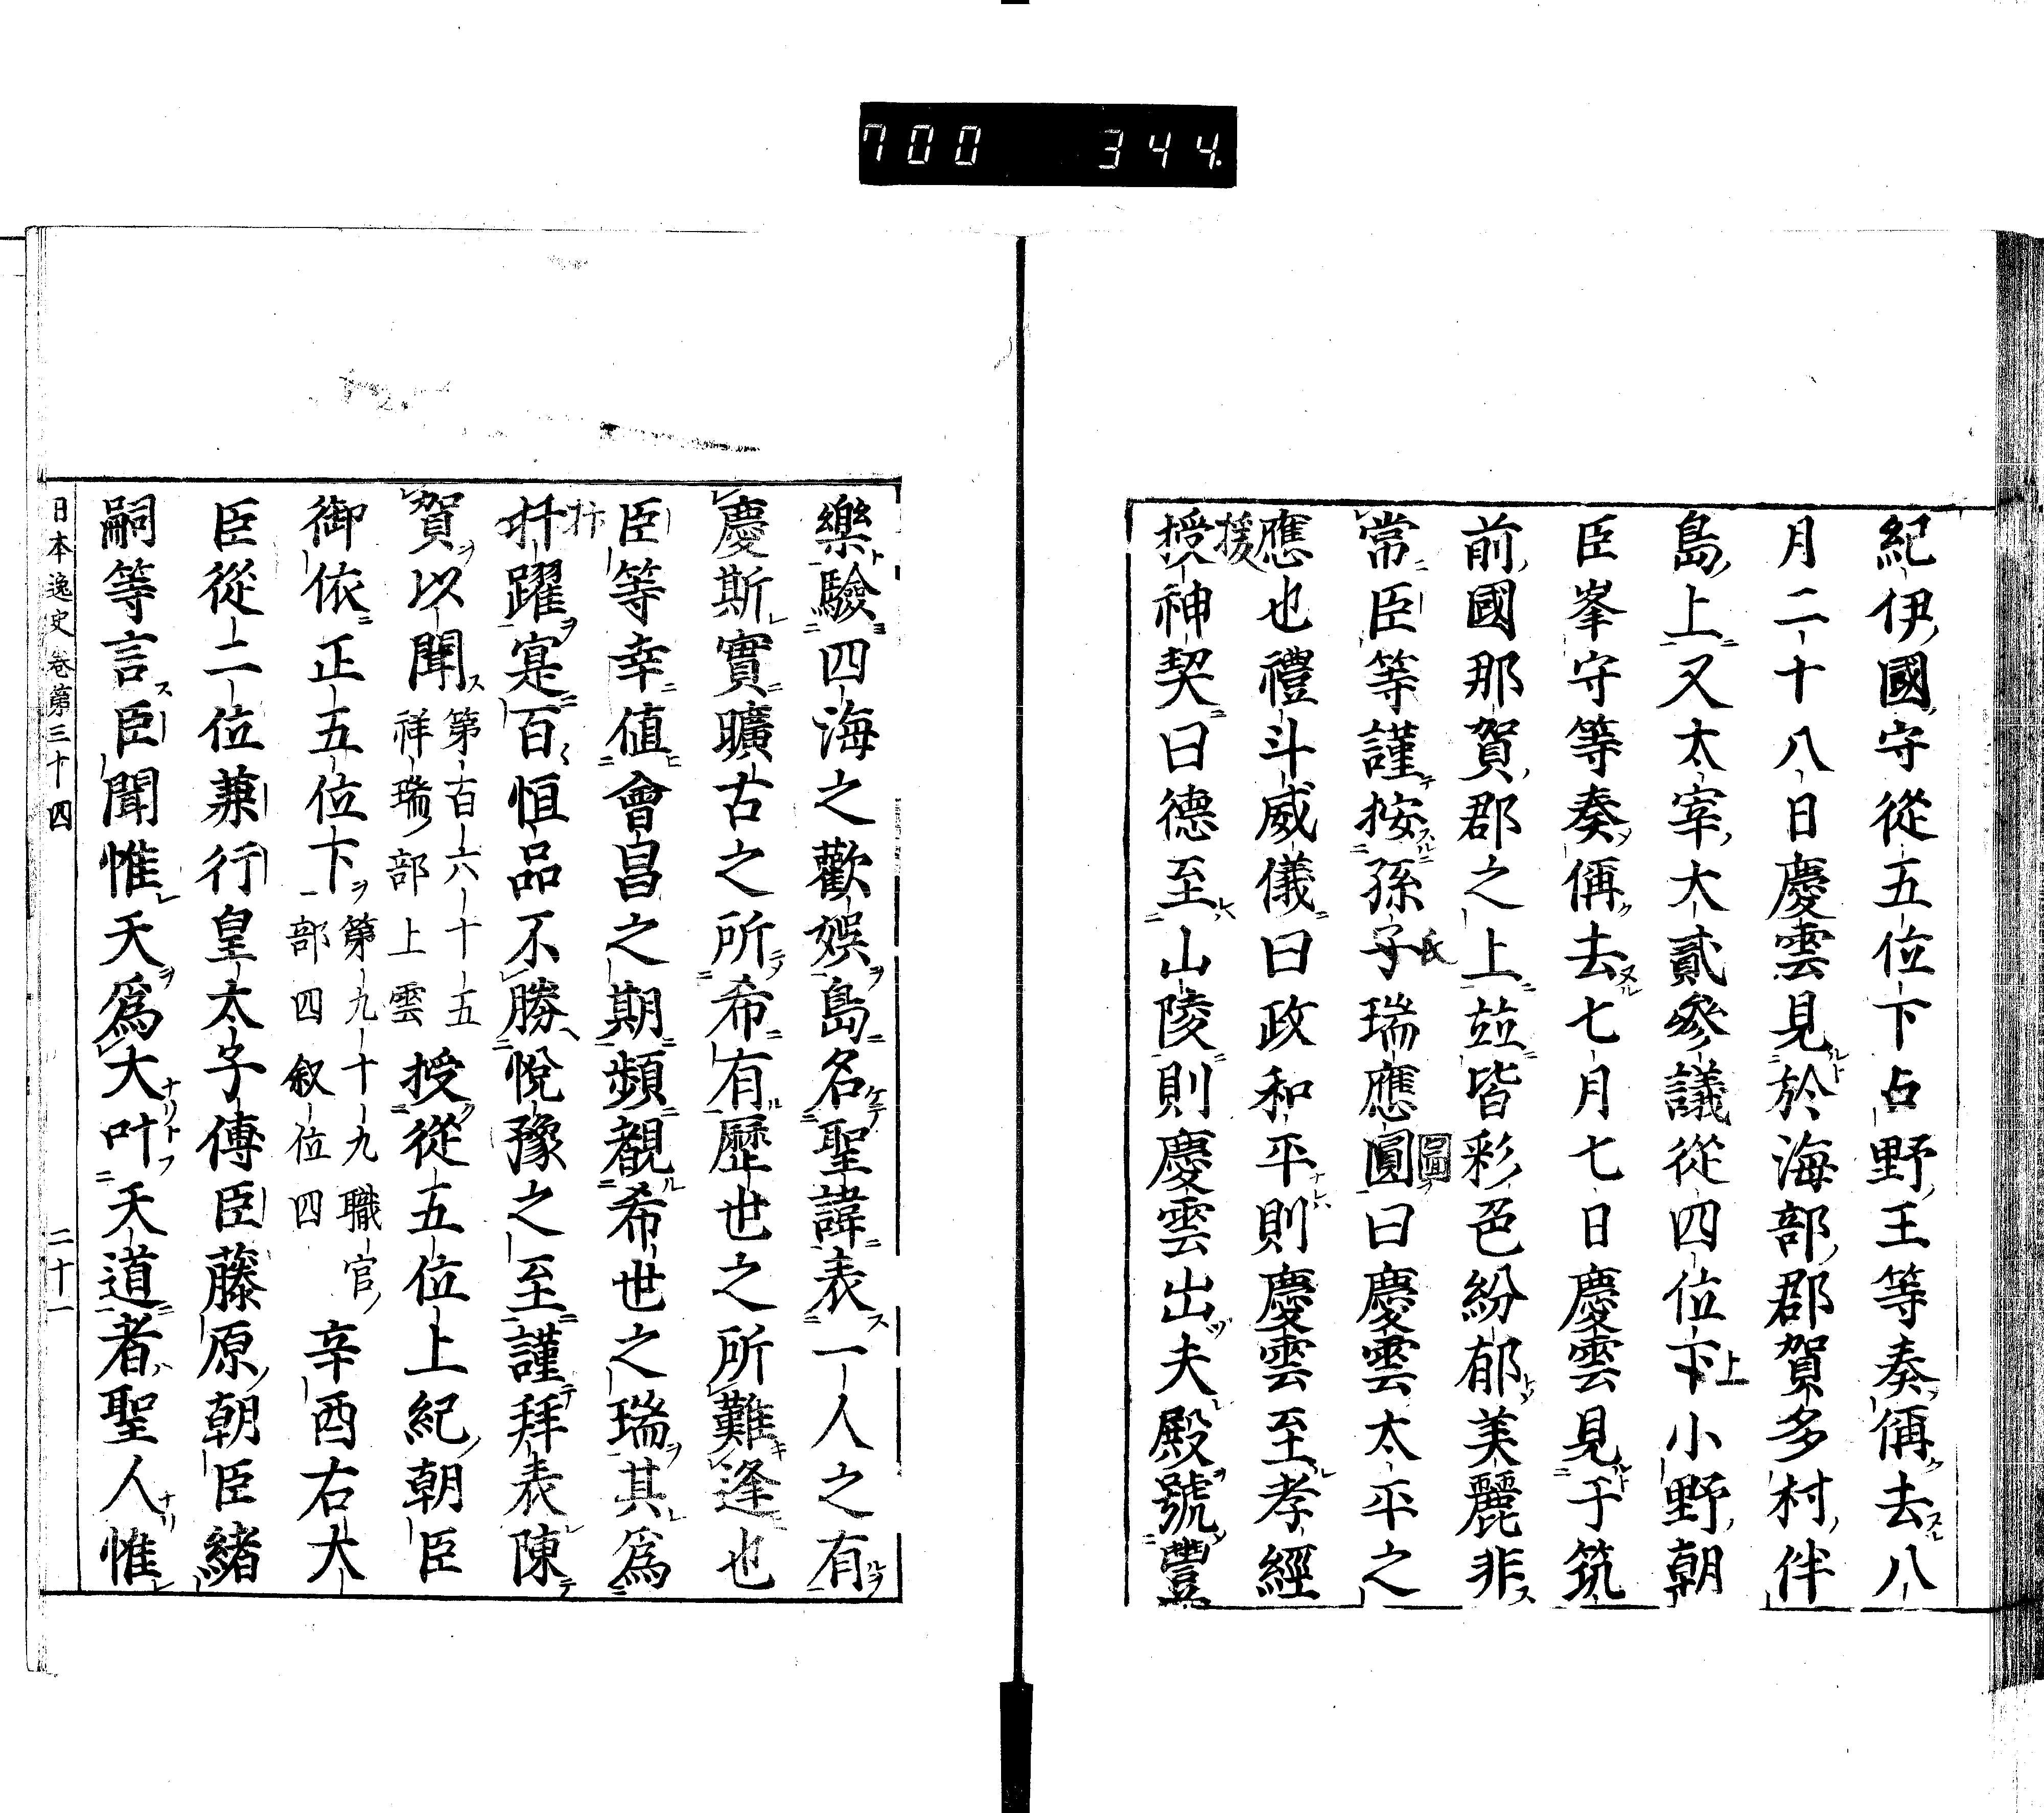 700 344.
紀伊國守從五位下占野王等奏偁去八
月二十八日慶雲見於海部郡賀多村伴
島上又太宰大貳參議從四位下小野朝
臣峯守等奏偁去七月七日慶雲見于筑
前國那賀郡之上竝皆彩色紛郁美麗非
常臣等謹按孫子瑞應圓曰慶雲太平之
應也禮斗威儀曰政和平則慶雲至孝經
授神契曰德至山陵則慶雲出夫殿號豐
樂驗四海之歡娯島名聖諱表一人之有
慶斯實曠古之所希有歷世之所難逢也
臣等幸值會昌之期頻覩希世之瑞其爲
抃躍寔百恒品不勝悅豫之至謹拜表陳
賀以聞第百六十五祥瑞部上雲授從五位上紀朝臣
御依正五位下第九十九職官部四叙位四辛酉右大
臣從二位兼行皇太子傅臣藤原朝臣緒
嗣等言臣聞惟天爲大叶天道者聖人惟
日本逸史 卷第三十四 二十一